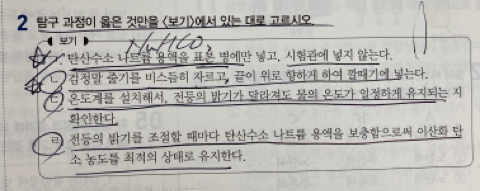 2 탐구 과정이 옳은 것만을 <보기>에서 있는 대로 고르시오.
보기
NaHCO₃
ㄱ. 탄산수소 나트륨 용액을 표본 병에만 넣고, 시험관에 넣지 않는다.
ㄴ. 검정말 줄기를 비스듬히 자르고, 끝이 위로 향하게 하여 깔때기에 넣는다.
ㄷ. 온도계를 설치해서, 전등의 밝기가 달라져도 물의 온도가 일정하게 유지되는 지
확인한다.
ㄹ. 전등의 밝기를 조절할 때마다 탄산수소 나트륨 용액을 보충함으로써 이산화 탄
소 농도를 최적의 상태로 유지한다.